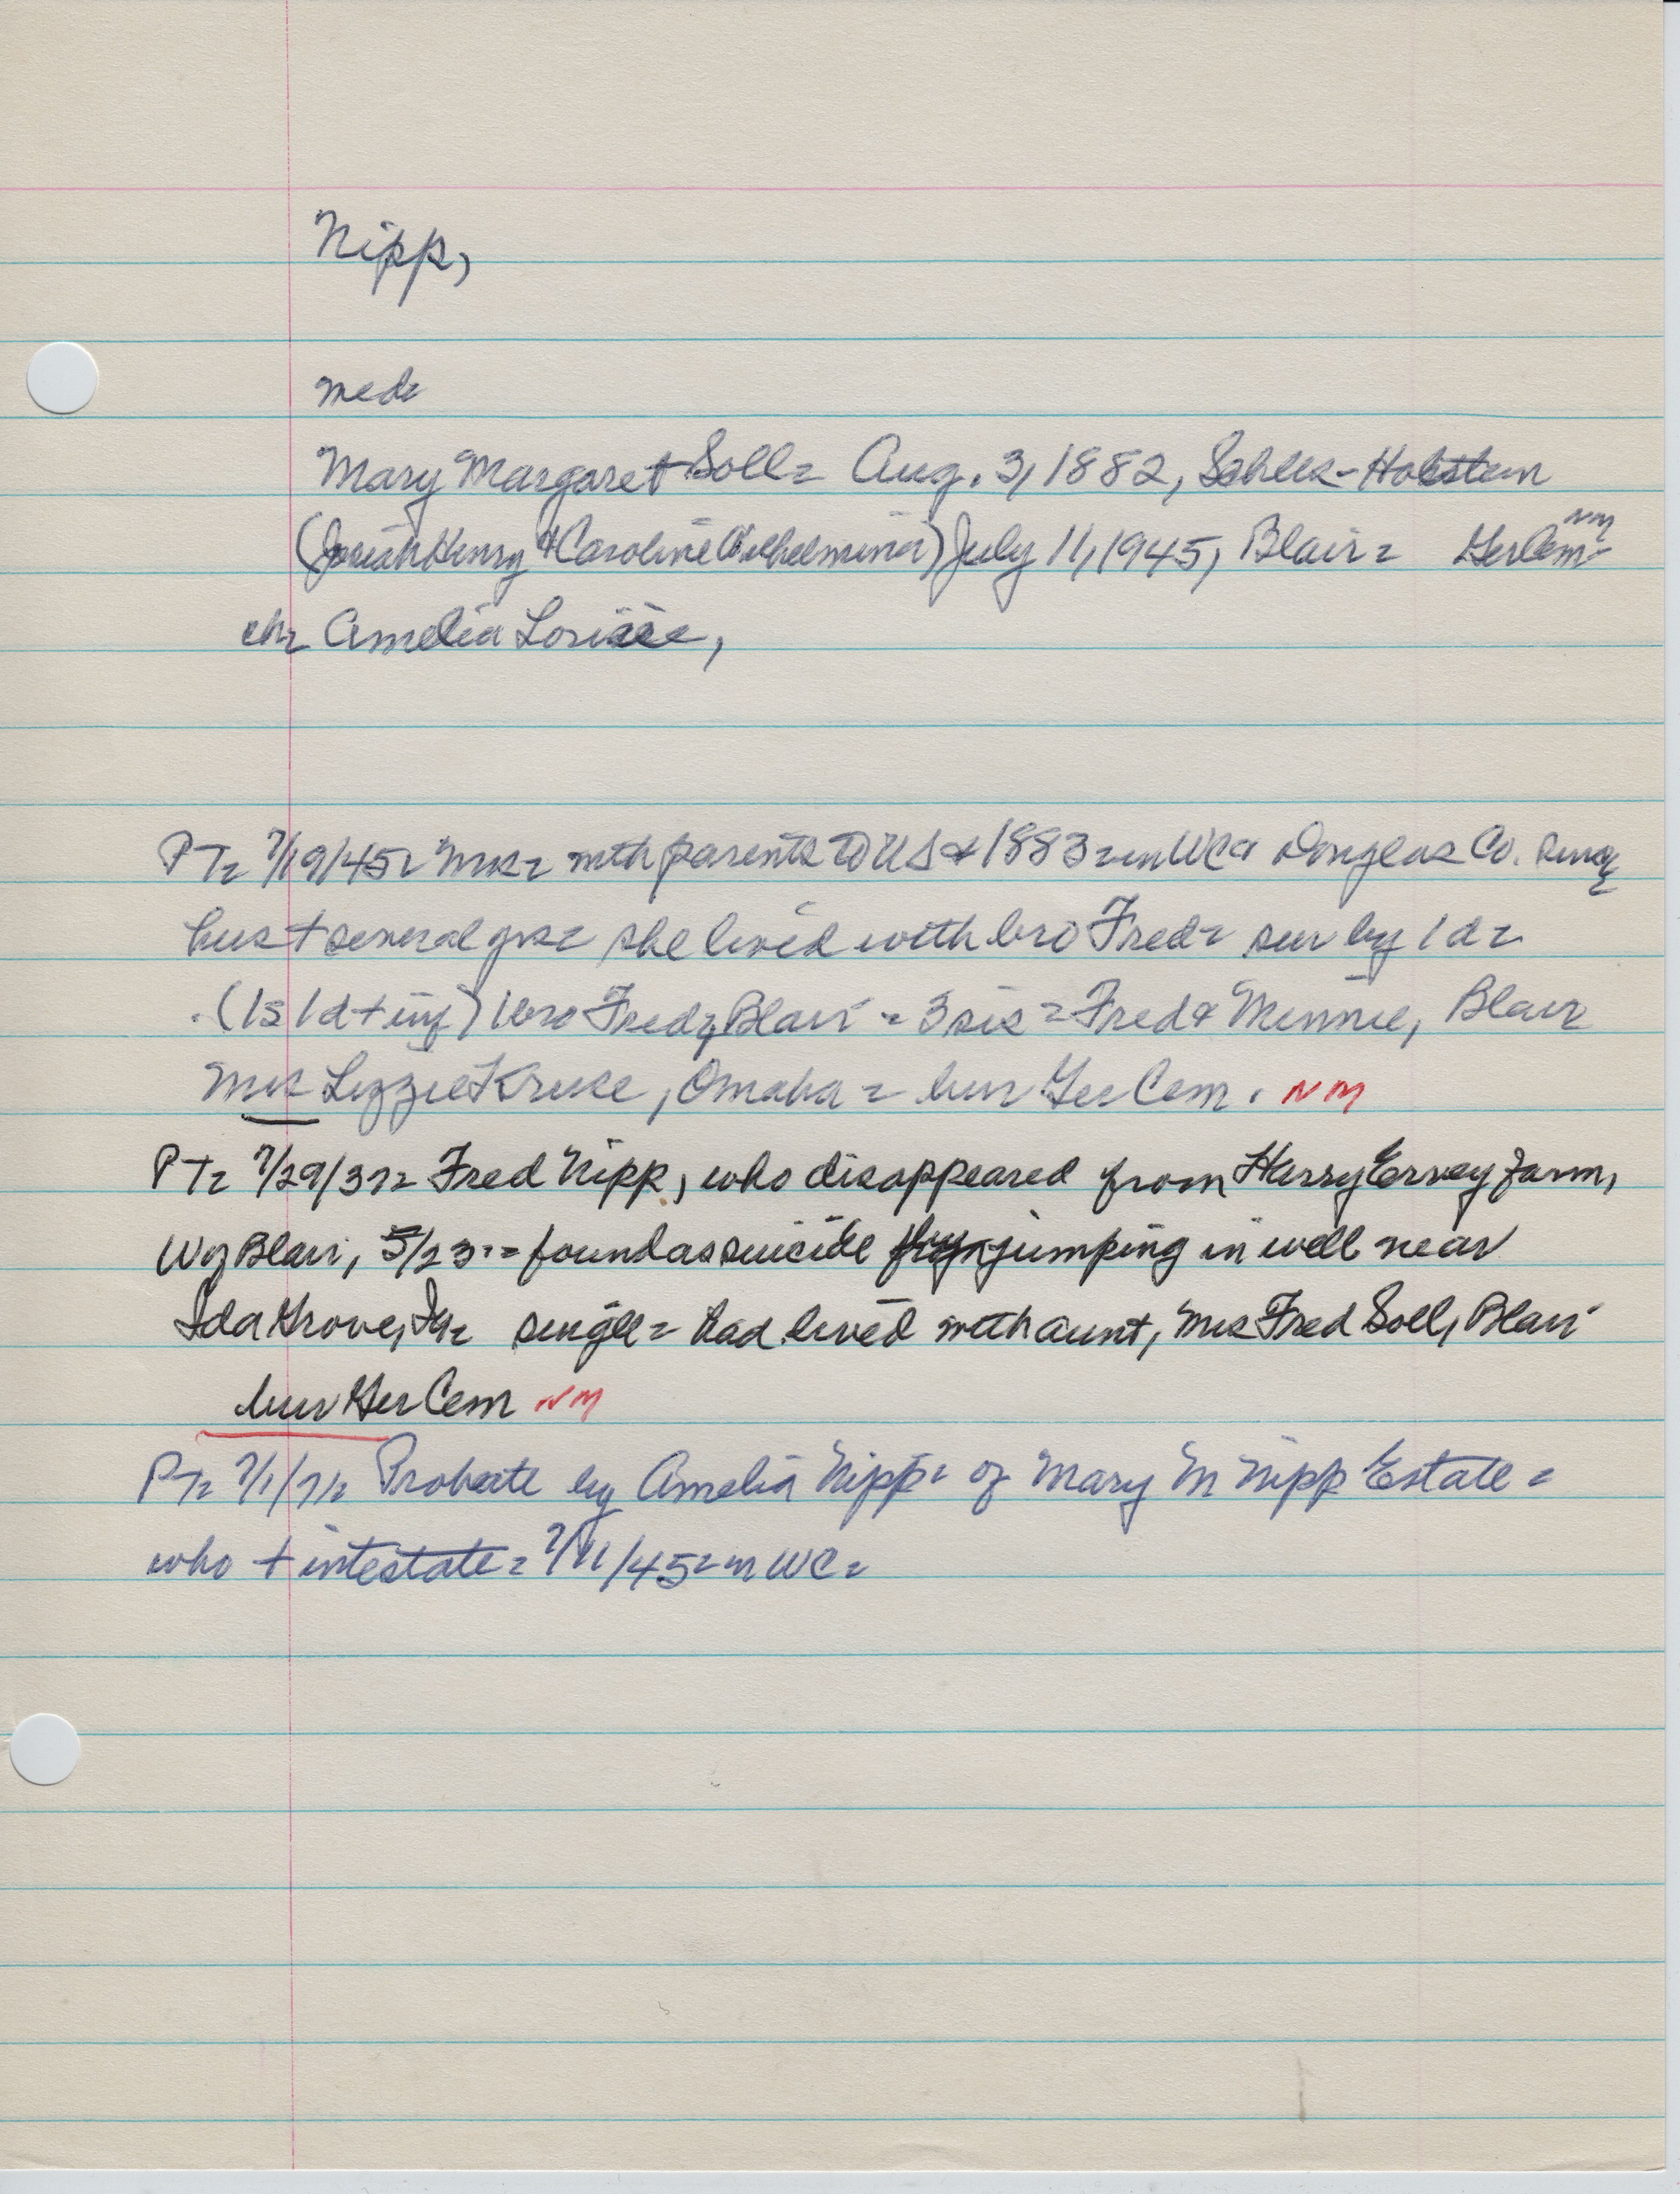 Nipp,
med=
Mary Margaret Soll= Aug. 3, 1882, Schles-Holstein
NM
( Henry & Caroline Wilhelmina) July 11, 1945, Blair= Ger Cem-
ch= Amelia
PT= 7/19/45= Mrs= with parents to US & 1883= in WC & Douglas Co. since
hus + several yrs= she lived with bro Fred= sur by 1 d=
(1s 1d + inf) 1 bro Fred, Blair = 3 sis = Fred & Minnie, Blair
Mrs Lizzie Kruse, Omaha = bur Ger Cem. NM
PT= 7/29/37= Fred Nipp, who disappeared from Harry Ervey farm,
W of Blair, 5/23 = found as suicide jumping in well near
Ida Grove, Ia= single = had lived with aunt, Mrs Fred Soll, Blair
bur Ger Cem NM
PT= 7/1/71= Probate by Amelia Nipp= of Mary M Nipp Estate =
who + intestate = 7/11/45= in WC=